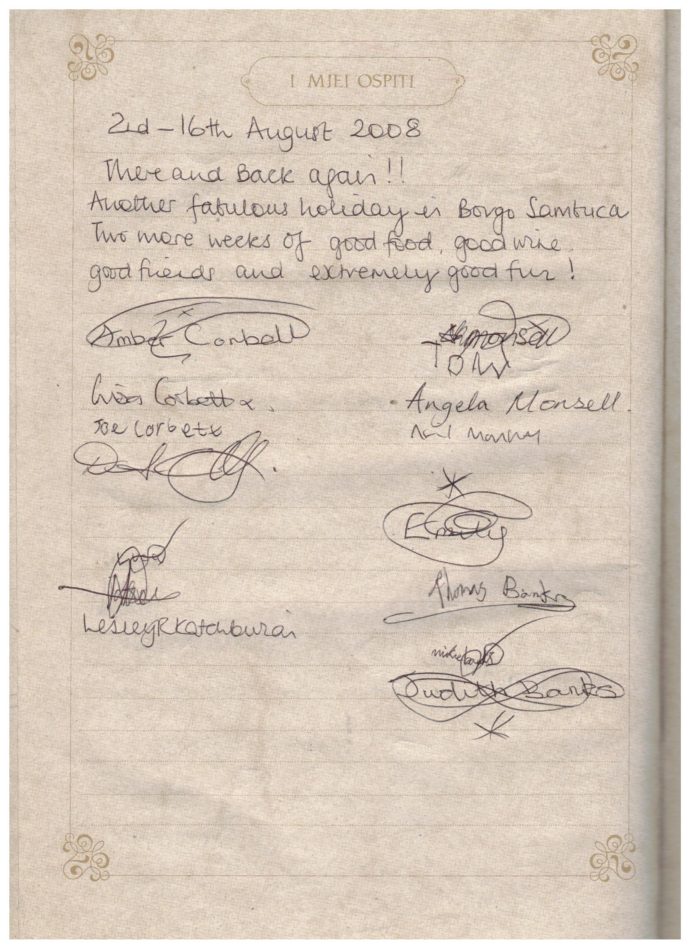 I MIEI OSPITI
2nd - 16th August 2008
There and Back again!!
Another fabulous holiday in Borgo Sambuca
Two more weeks of good food, good wine.
good friends and extremely good fun!
Amber Corbett
Lisa Corbett x.
Joe Corbett x
Lesley R Katchburian
TOM
Angela Monsell.
Emily
Thomas Banks
Judith Banks